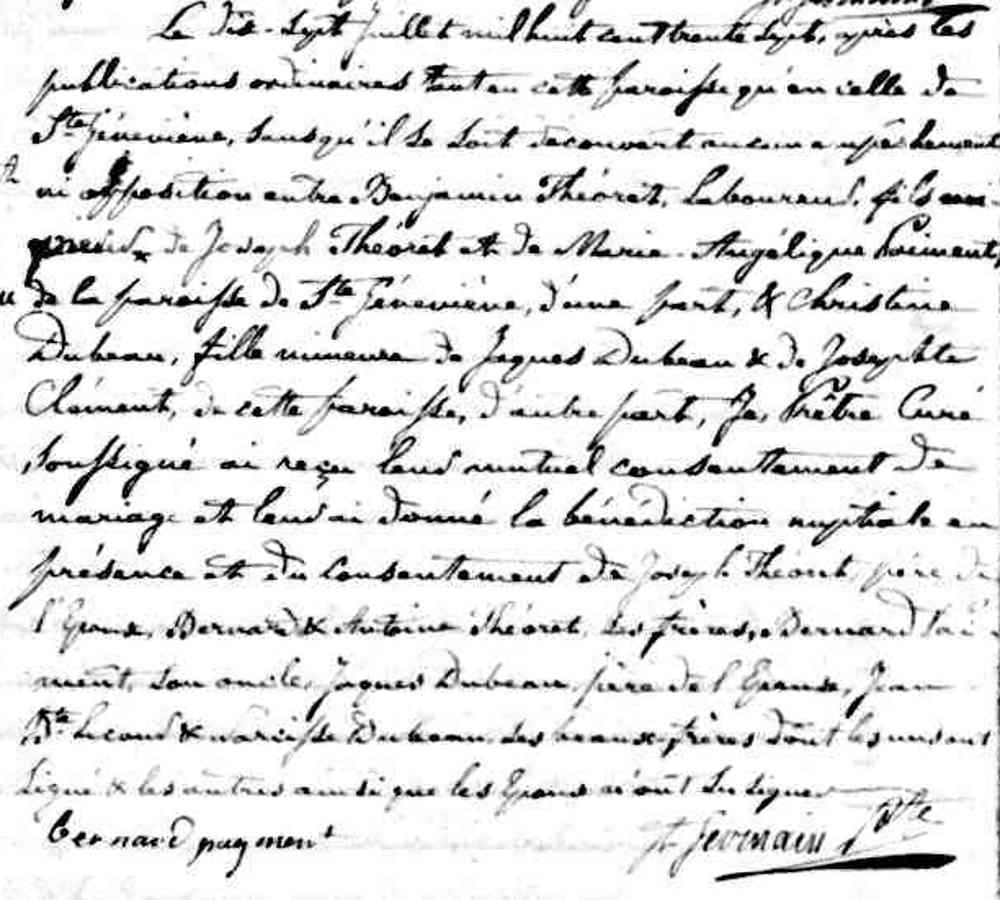 Le dix-sept Juillet mil huit cent trente sept, après les
publications ordinaires tant en cette paroisse qu'en celle de
Ste Géneviève, sans qu'il se soit découvert aucun empêchement
ni opposition entre Benjamin Théoret, Laboureur, fils
de Joseph Théoret et de Marie-Angélique Poiment,
de la paroisse de Ste Géneviève, d'une part, & Christine
Dubeau, fille mineure de Jaques Dubeau & de Josephte
Clément, de cette paroisse, d'autre part, Je, Prêtre Curé
soussigné ai reçu leur mutuel consentement de
mariage et leur ai donné la bénédiction nuptiale en
présence et du consentement de Joseph Théoret, père de
l'Epoux, Bernard & Antoine Théoret, ses frères, Bernard Pai
ment, son oncle, Jaques Dubeau, père de l'Epouse, Jean
Bte & Narcisse Dubeau ses beaux-frères dont les uns ont
signé & les autres ainsi que les Epoux n'ont su signer
bernard payment
Germain Ptre